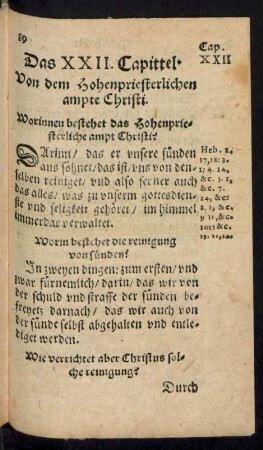 89
Cap.
XXII
Das XXII. Capittel.
Von dem Hohenpriesterlichen
ampte Christi.
Worinnen bestehet das Hohenprie-
sterliche ampt Christi?
DArinn / das er vnsere sünden
aus söhnet / das ist / vns von den-
selben reiniget / vnd also ferner auch
das alles / was zu vnserm gottesdien-
ste vnd seligkeit gehöret / im himmel
immerdar verwaltet.
Heb. 2,
17, 18: 3.
1: 4. 14,
&c. 5. 1,
&c. 7.
24, &c. 8
9 11, &c.
Worin bestehet die reinigung
von sünden?
In zweyen dingen: zum ersten / vnd
zwar fürnemlich / darin / das wir von
der schuld vnd straffe der sünden be-
freyet; darnach / das wir auch von
der sünde selbst abgehalten vnd entle-
diget werden.
Wie verrichtet aber Christus sol-
che reinigung?
Durch